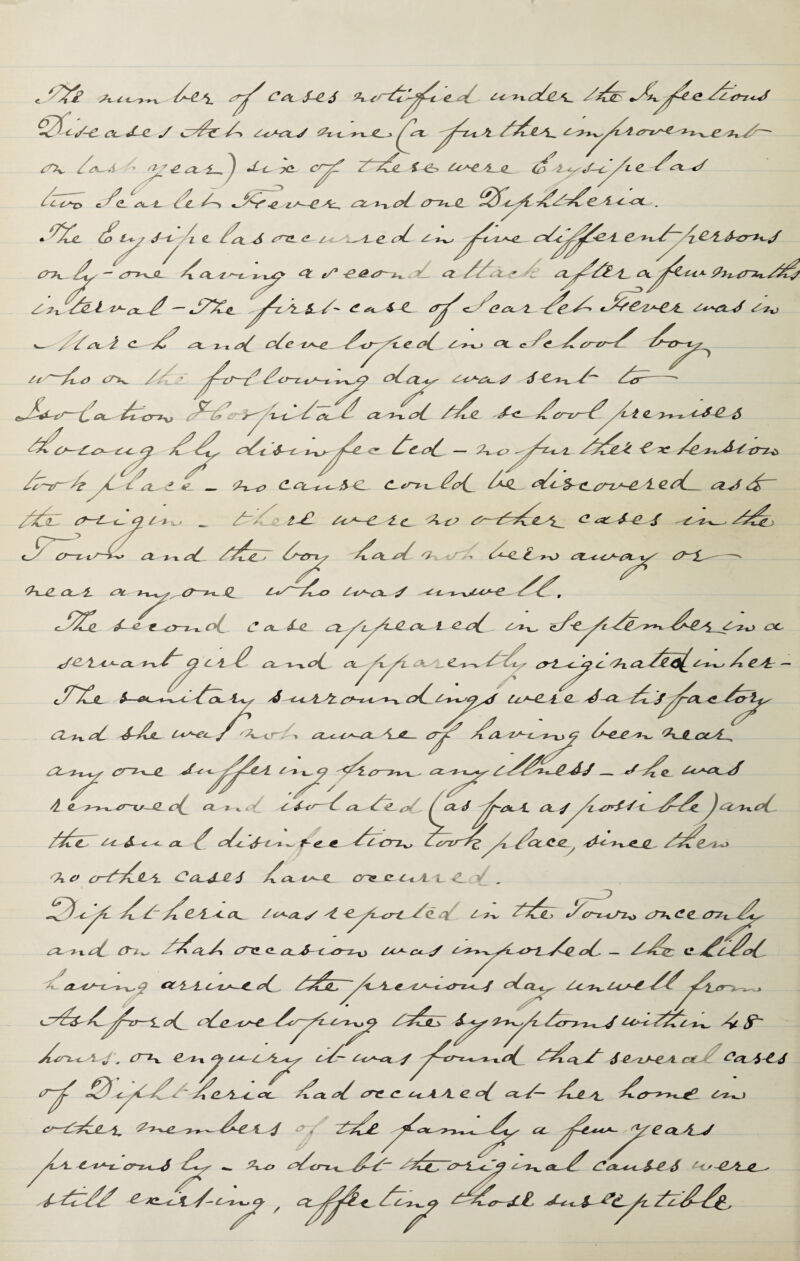 The number of cases notified under the Infectious
Disease s Act was nine, (a further improvement
on last year) six of these were Erysipelas
two Scarlet Fever, and one Diphtheria.
The Erysipelas occurred in five different persons
only - one having a second attack after a few months
interval - The first case of Scarlet Fever was in
March and developed in a School boy,
who on the following day was sent to
Isolation Hospital and the school premises
thoroughly disinfected - no further extension
took place - no cause could be discovered as to
the origin - there were no other cases in the
Town and the boy had not been away or
near any one who was unwell.
The second case appeared in September in a
servant girl and apparently originated in her -
The sanitary surroundings were satisfactory
and she was not aware of having been near
any one suffering from any illness - she was
removed and isolated (as far as possible) and
the usual disinfection took place, since then
no other cases have occurred.
Diphtheria was reported in the Town once only
and on that occasion was imported - the child
having arrived the previous day unwell from
Ashford developing the symptoms within 48
hours, on enquiry it was found that several cases
of Diphtheria had occurred at her home in
other members of the family a few years
previously - no doubt the original causes were
still existing, affecting those susceptible.